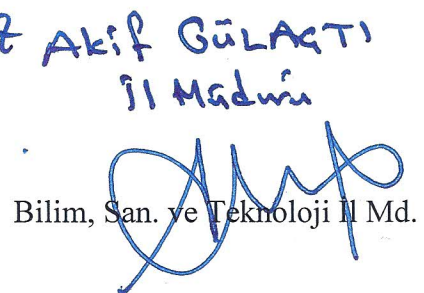 Akif GÜLAÇTI
İl Müdürü
Bilim, San. ve Teknoloji İl Md.